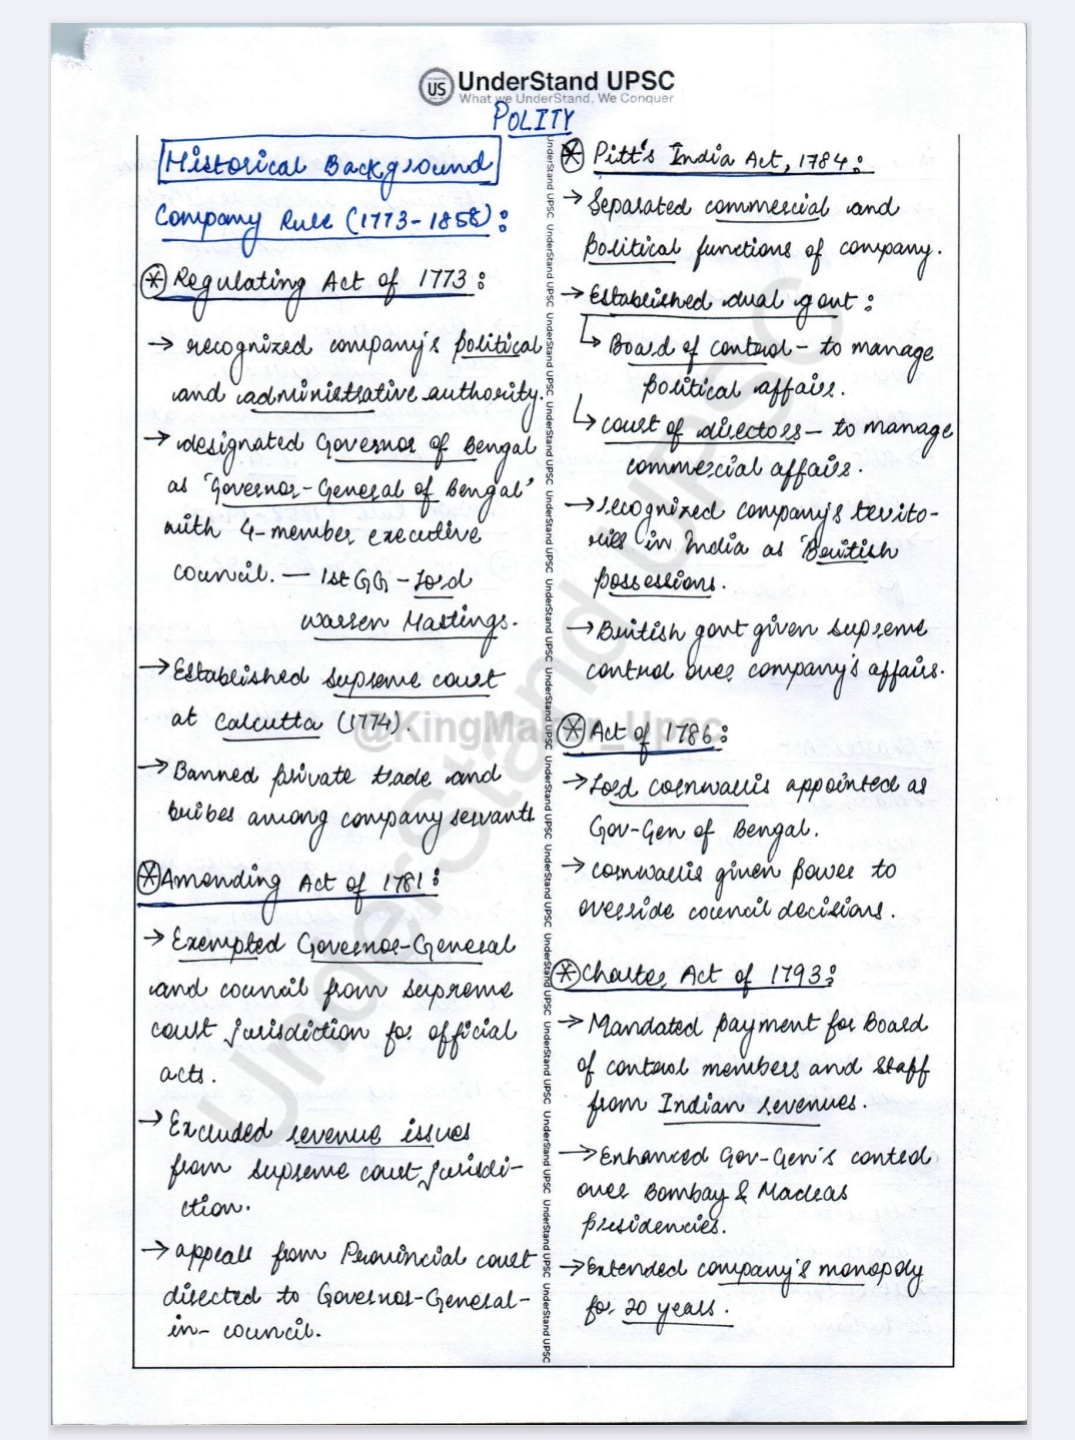 US UnderStand UPSC
What we UnderStand, We Conquer
POLITY
Historical Background
Company Rule (1773-1858):
* Regulating Act of 1773:
→ recognized company's political
and administrative authority.
→ designated Governor of Bengal
as 'Governor-General of Bengal'
with 4-member executive
council. — 1st GG - Lord
Warren Hastings.
→ Established supreme court
at Calcutta (1774).
→ Banned private trade and
bribes among company servants
* Amending Act of 1781:
→ Exempted Governor-General
and council from supreme
court jurisdiction for official
acts.
→ Excluded revenue issues
from supreme court jurisdi-
ction.
→ appeals from Provincial court
directed to Governor-General-
in-council.
* Pitt's India Act, 1784:
→ Separated commercial and
political functions of company.
→ Established dual govt:
↳ Board of control - to manage
political affairs.
↳ court of directors - to manage
commercial affairs.
→ recognized company's territo-
ries in India as 'British
possessions.
→ British govt given supreme
control over company's affairs.
* Act of 1786:
→ Lord cornwallis appointed as
Gov-Gen of Bengal.
→ cornwallis given power to
override council decisions.
* Charter Act of 1793:
→ Mandated payment for Board
of control members and staff
from Indian revenues.
→ Enhanced Gov-Gen's control
over Bombay & Madras
presidencies.
→ Extended company's monopoly
for 20 years.
UnderStand UPSC
@KingMaker_Upsc
UnderStand UPSC UnderStand UPSC UnderStand UPSC UnderStand UPSC UnderStand UPSC UnderStand UPSC UnderStand UPSC UnderStand UPSC UnderStand UPSC UnderStand UPSC UnderStand UPSC UnderStand UPSC UnderStand UPSC UnderStand UPSC